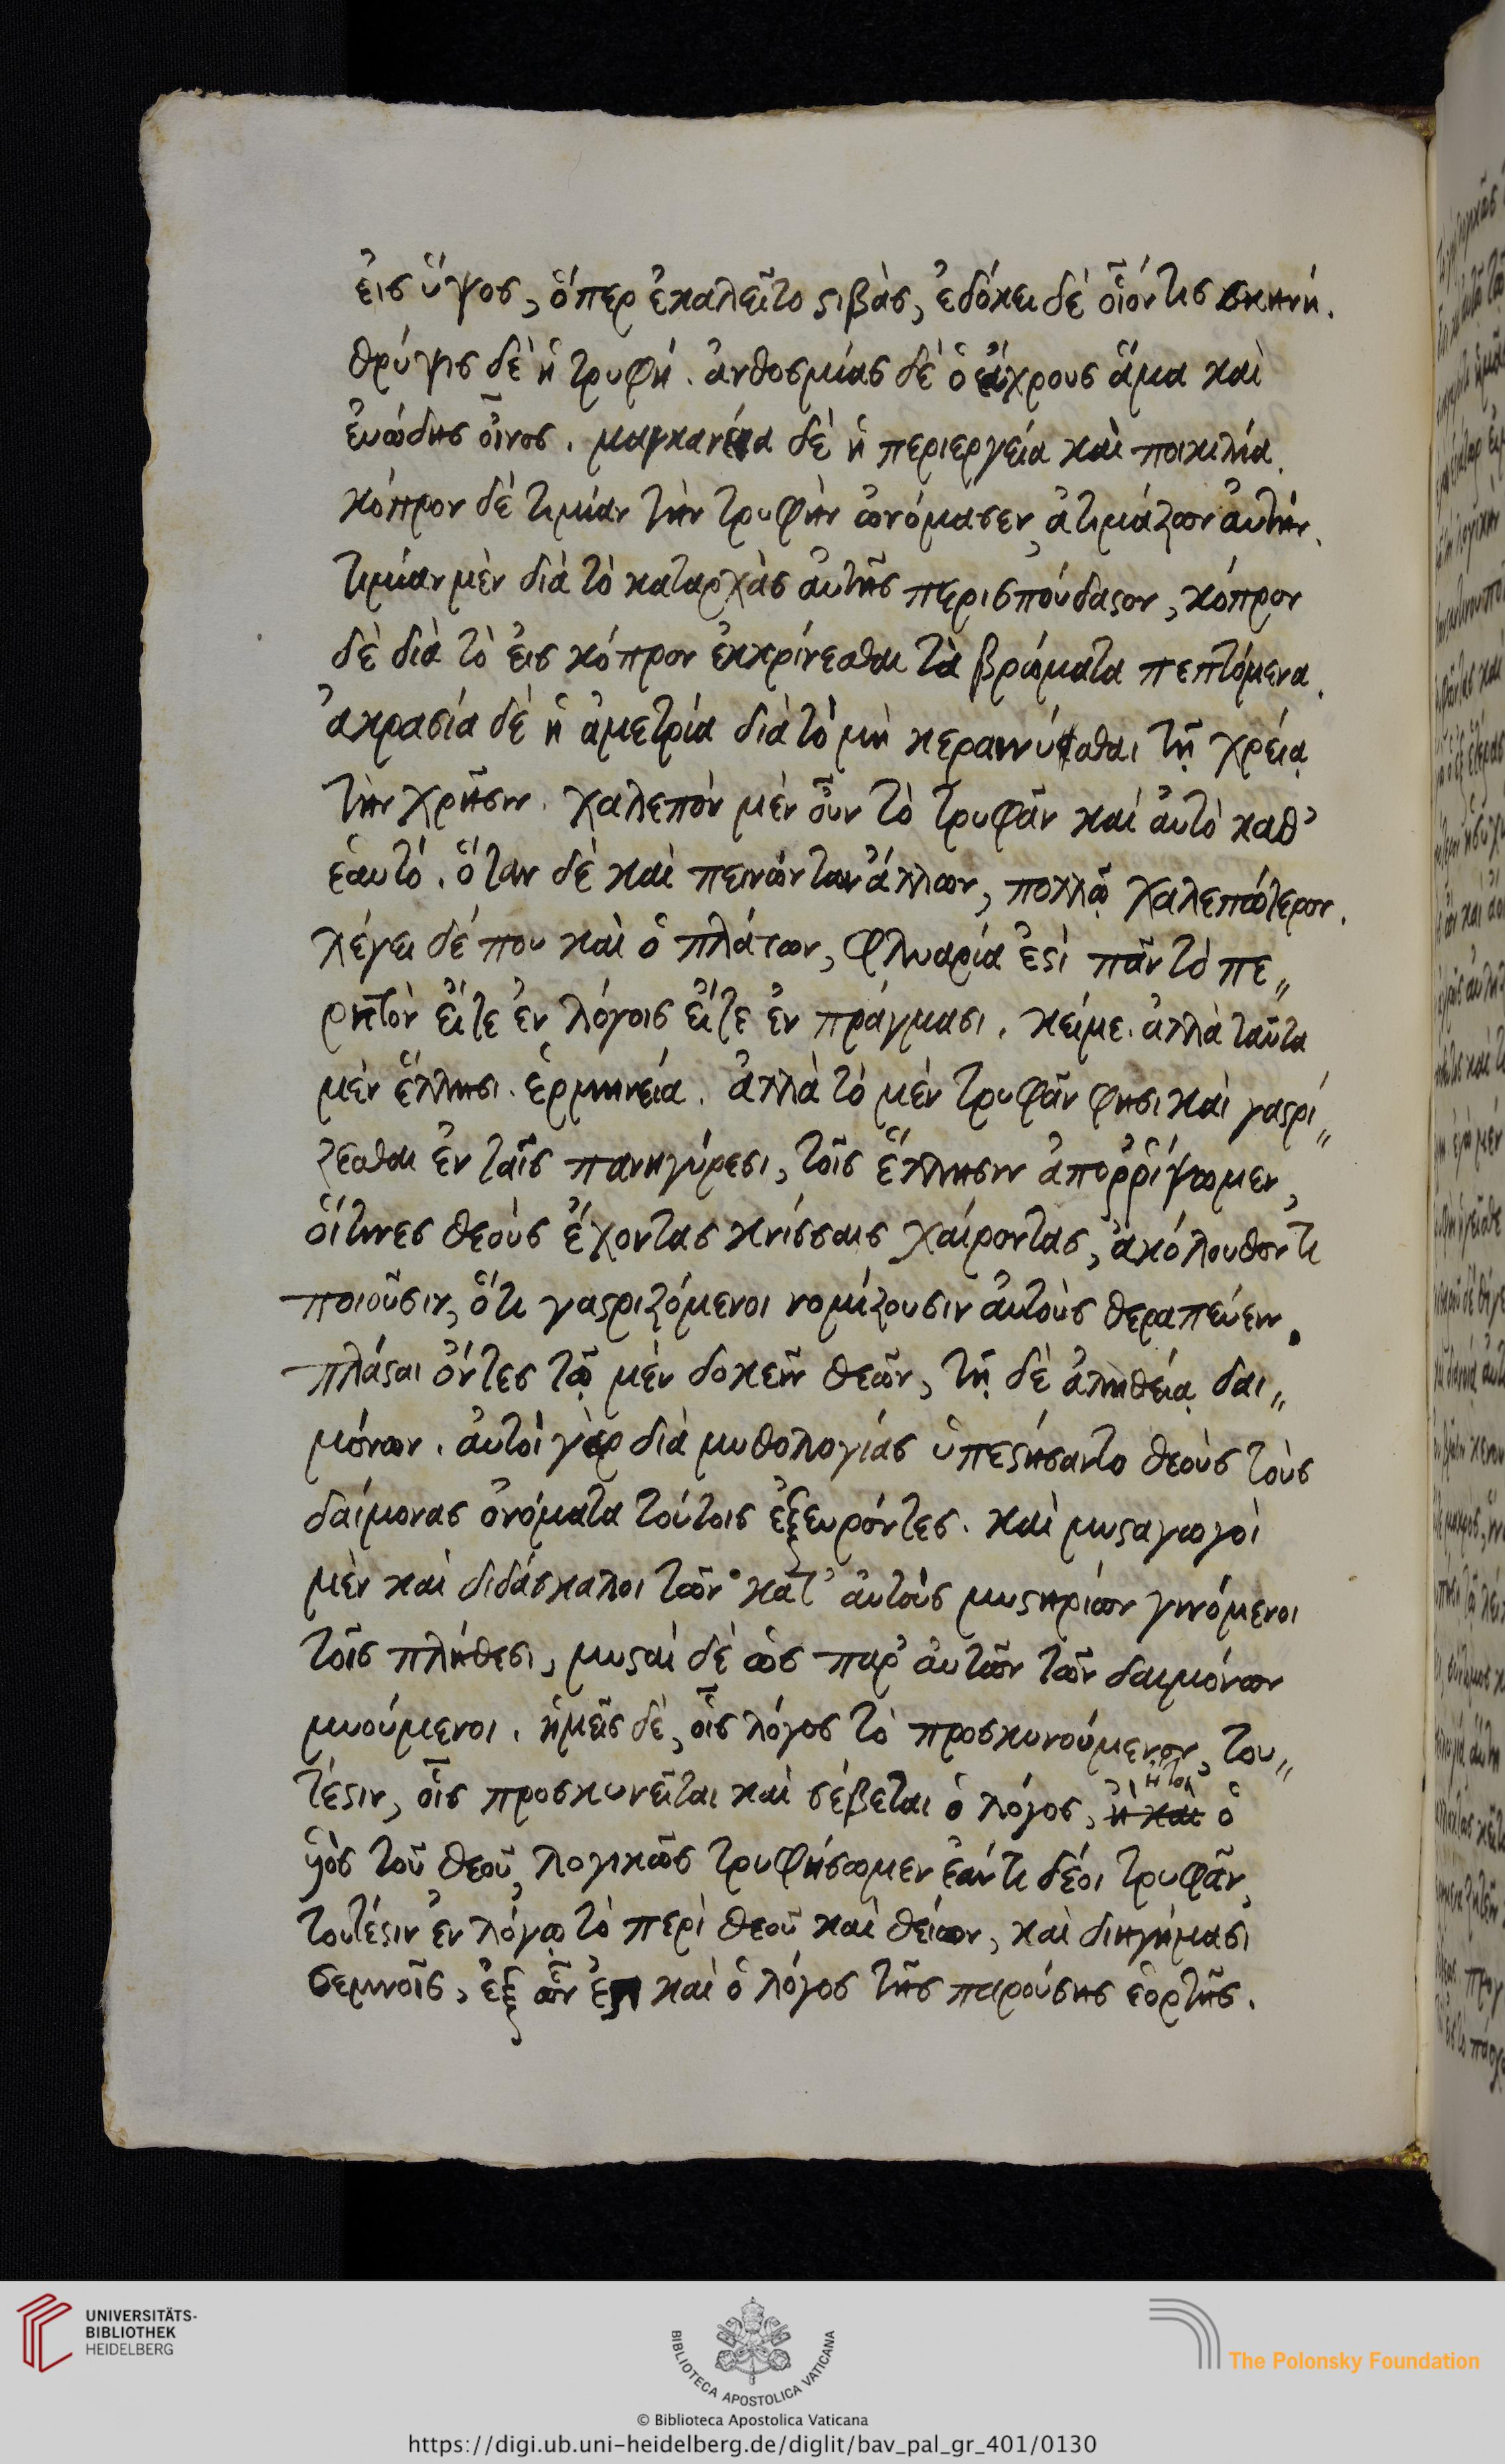 εἰς ὕψος, ὅπερ ἐκαλεῖτο στιβὰς, ἐδόκει δὲ οἷόν τις σκηνή.
θρύψις δὲ ἡ τρυφή. ἀνθοσμίας δὲ ὁ εὔχρους ἅμα καὶ
εὐώδης οἶνος. μαγκανεία δὲ ἡ περιεργεία καὶ ποικιλία.
κόπρον δὲ τιμίαν τὴν τρυφὴν ὠνόμασεν, ἀτιμάζων αὐτήν.
τιμίαν μὲν διὰ τὸ καταρχὰς αὐτῆς περισπούδαστον, κόπρον
δὲ διὰ τὸ εἰς κόπρον ἐκκρίνεσθαι τὰ βρώματα πεπτόμενα.
ἀκρασία δὲ ἡ ἀμετρία διὰ τὸ μὴ κεραννύσθαι τῇ χρείᾳ
τὴν χρῆσιν. χαλεπὸν μὲν οὖν τὸ τρυφᾶν καὶ αὐτὸ καθ᾽
ἑαυτό. ὅταν δὲ καὶ πεινώντων ἄλλων, πολλῷ χαλεπώτερον.
λέγει δέ που καὶ ὁ πλάτων, φλυαρία ἐστὶ πᾶν τὸ πε〃
ριττὸν εἴτε ἐν λόγοις εἴτε ἐν πράγμασι. κείμε. ἀλλὰ ταῦτα
μὲν ἕλλησι. ἑρμηνεία. ἀλλὰ τὸ μὲν τρυφᾶν φησὶ καὶ γαστρί〃
ζεσθαι ἐν ταῖς πανηγύρεσι, τοῖς ἕλλησιν ἀποῤῥίψωμεν,
οἵτινες θεοὺς ἔχοντας κνίσσαις χαίροντας, ἀκόλουθόν τι
ποιοῦσιν, ὅτι γαστριζόμενοι νομίζουσιν αὐτοὺς θεραπεύειν.
πλάσται ὄντες τῷ μὲν δοκεῖν θεῶν, τῇ δὲ ἀληθείᾳ δαι〃
μόνων. αὐτοὶ γὰρ διὰ μυθολογίας ὑπεστήσαντο θεοὺς τοὺς
δαίμονας ὀνόματα τούτοις ἐξευρόντες. καὶ μυσταγωγοὶ
μὲν καὶ διδάσκαλοι τῶν κατ᾽ αὐτοὺς μυστηρίων γινόμενοι
τοῖς πλήθεσι, μυσταὶ δὲ ὡς παρ᾽ αὐτῶν τῶν δαιμόνων
μυούμενοι. ἡμεῖς δὲ, οἷς λόγος τὸ προσκυνούμενον, του〃
τέστιν, οἷς προσκυνεῖται καὶ σέβεται ὁ λόγος, ἤτοι ὁ
υἱὸς τοῦ θεοῦ, λογικῶς τρυφήσωμεν ἐάν τι δέοι τρυφᾶν,
τουτέστιν ἐν λόγῳ τὸ περὶ θεοῦ καὶ θείων, καὶ διηγήμασι
σεμνοῖς, ἐξ ὧν ἐστι καὶ ὁ λόγος τῆς παρούσης ἑορτῆς.
UNIVERSITÄTS-
BIBLIOTHEK
HEIDELBERG
BIBLIOTECA APOSTOLICA VATICANA
The Polonsky Foundation
© Biblioteca Apostolica Vaticana
https://digi.ub.uni-heidelberg.de/diglit/bav_pal_gr_401/0130